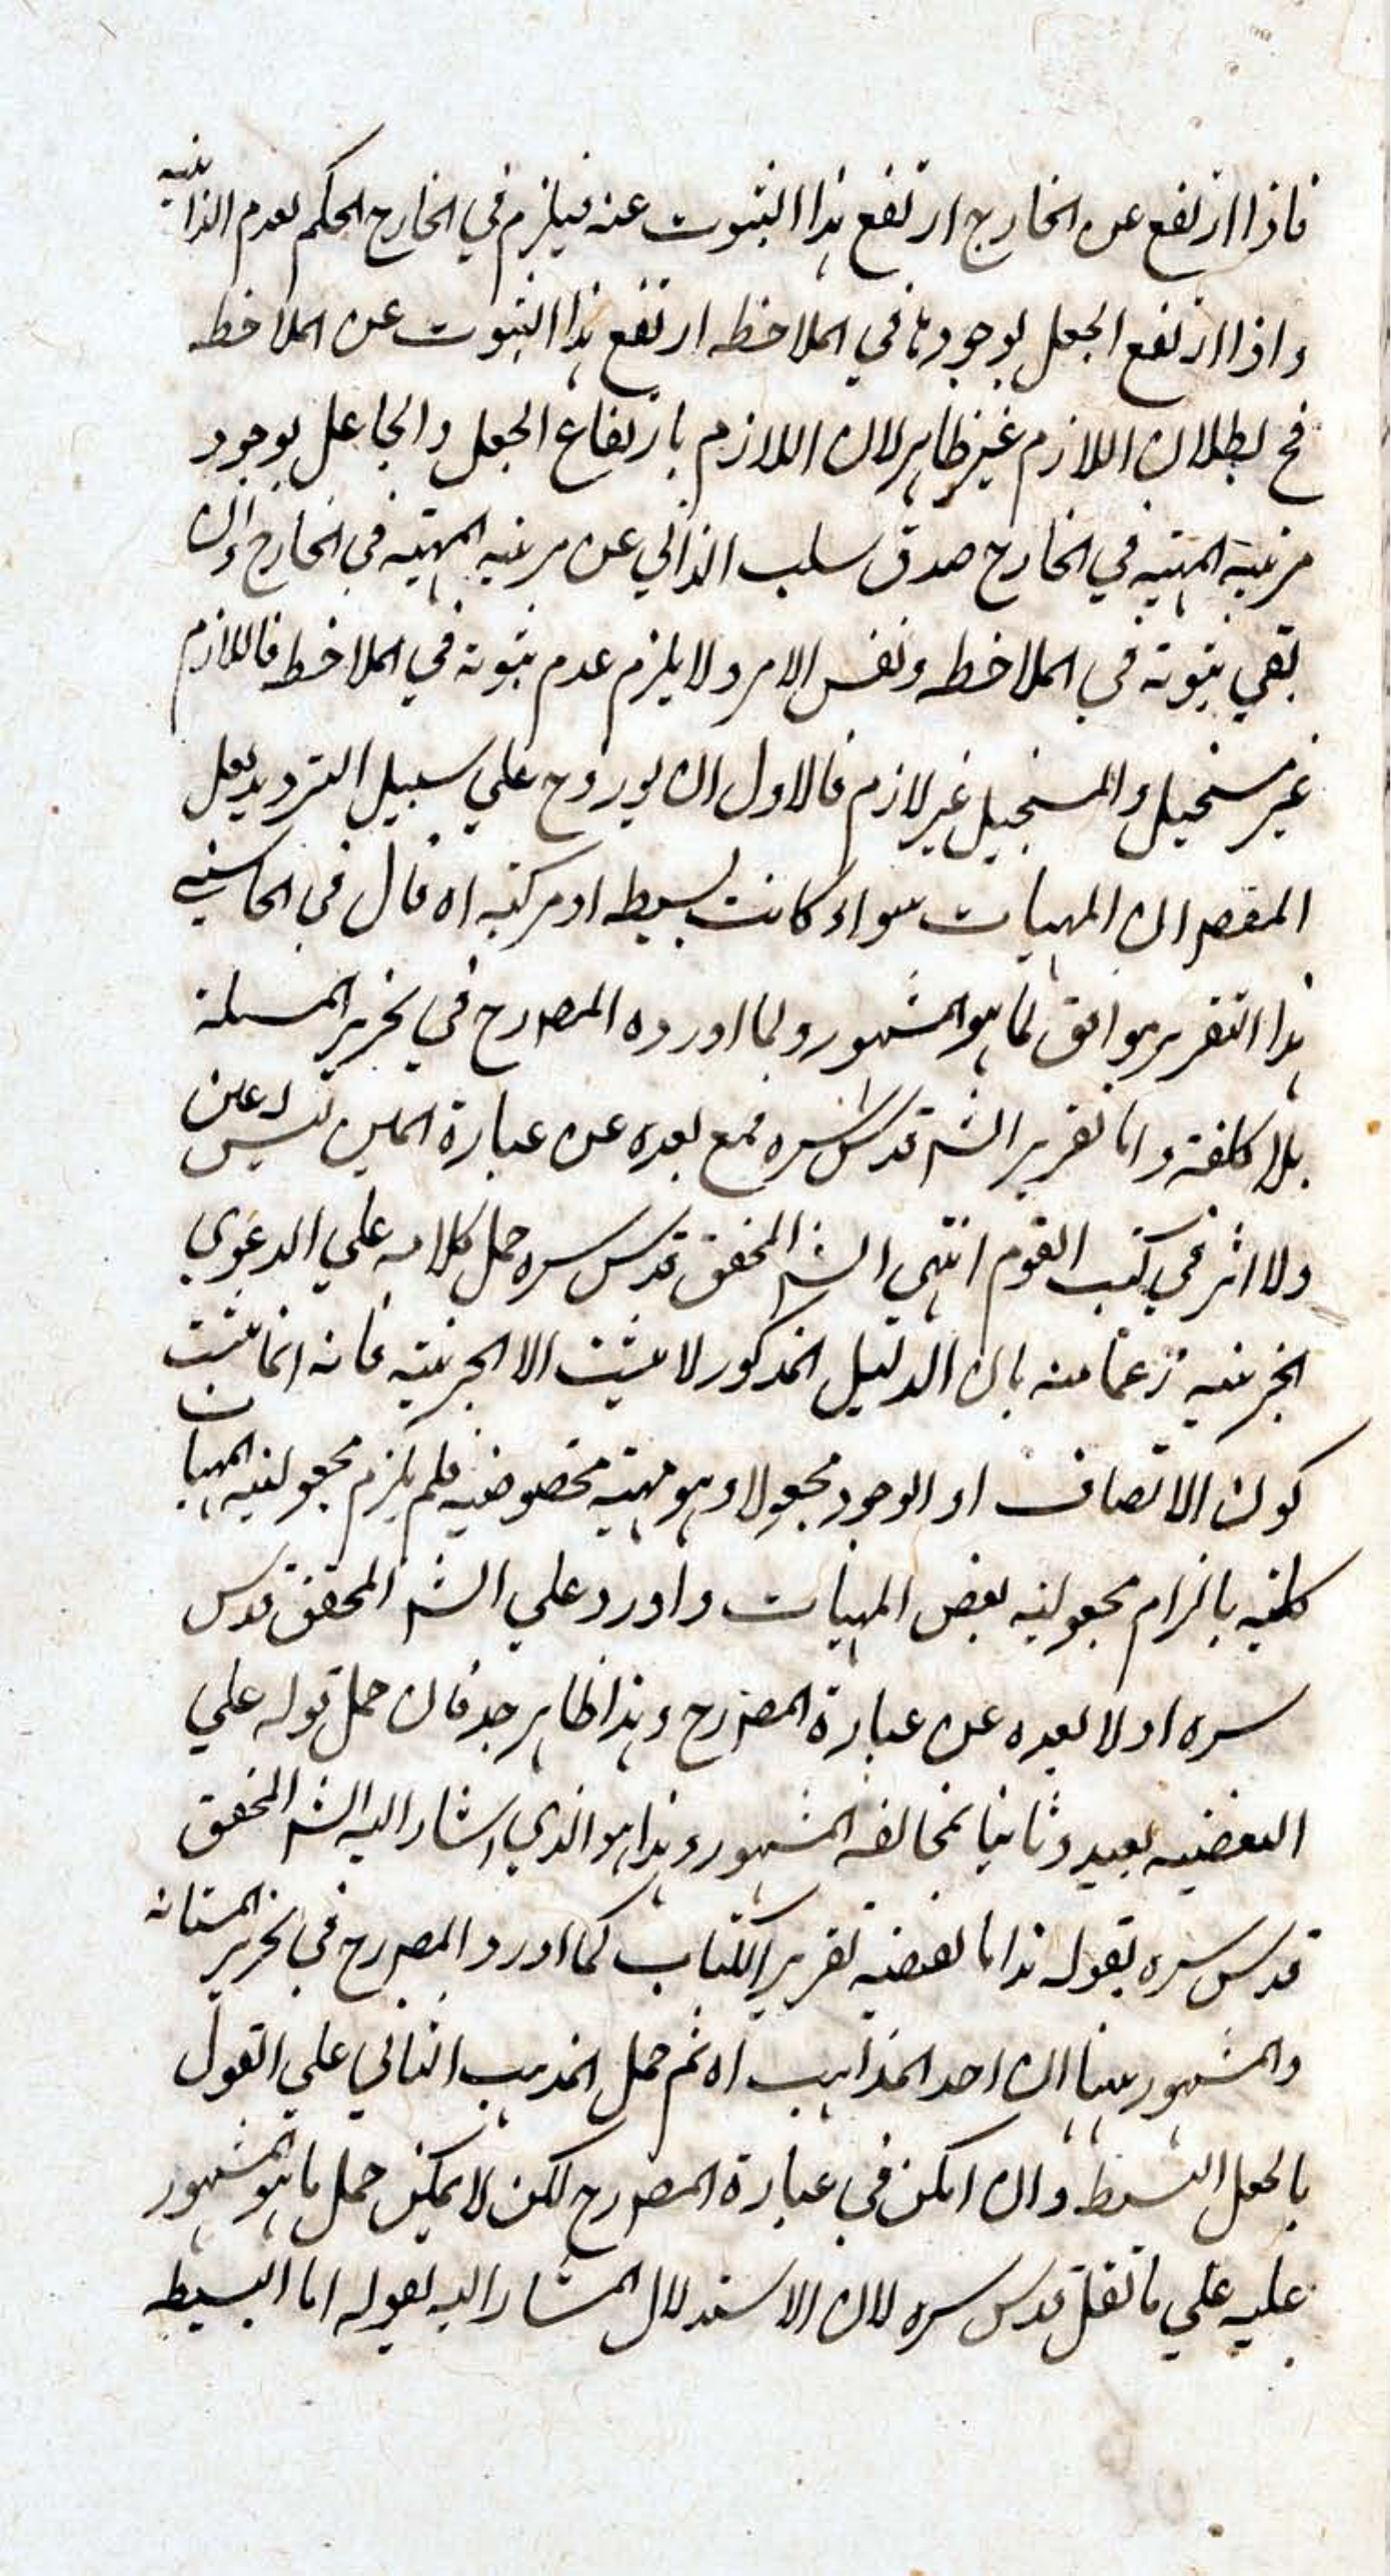 فاذا ارتفع عن الخارج ارتفع هذا الثبوت عنه فيلزم في الخارج الحكم بعدم الذاتية
واذا ارتفع الجعل بوجودها في الملاحظه ارتفع هذا الثبوت عن الملاحظه
فح بطلان اللازم غير ظاهر لان اللازم بارتفاع الجعل والجاعل بوجود
مرتبة المهية في الخارج صدق سلب الذاتي عن مرتبه المهية في الخارج وان
بقي ثبوته في الملاحظه ونفس الامر ولا يلزم عدم ثبوته في الملاحظه فاللازم
غير مستحيل والمستحيل غير لازم فالاول ان يورد ح علي سبيل الترديد لعل
المقصر ان المهيات سواء كانت بسيطه او مركبه اه قال في الحاشية
هذا التقرير موافق لما هو المشهور ولما اورده المصرح في تحرير المسئلة
بلا كلفة واما تقرير الشم قدس سره فمع بعده عن عبارة المتن ليس له عين
ولا اثر في كتب القوم انتهي الشم المحقق قدس سره حمل كلامه علي الدعوي
الجزئيه زعما منه بان الدليل المذكور لا يثبت الا الجزئيه فانه انما يثبت
كون الاتصاف او الوجود مجعولا وهو مهية مخصوصه فلم يلزم مجعوليه المهيات
كليه بالزام مجعوليه بعض المهيات واورد علي الشم المحقق قدس
سره اولا بعده عن عبارة المصرح وهذا ظاهر جد فان حمل قوله علي
البعضيه بعيد وثانيا مخالفه المشهور وهذا هو الذي اشار اليه الشم المحقق
قدس سره بقوله هذا ما يقتضيه تقرير الكتاب كما اورد المصرح في تحرير المسئله
والمشهور بينها ان احد المذاهب اه ثم حمل المذهب الثاني علي القول
بالجعل البسيط وان امكن في عبارة المصرح لكن لا يمكن حمل ما هو المشهور
عليه علي ما نقل قدس سره لان الاستدلال المشار اليه بقوله اما البسيطه